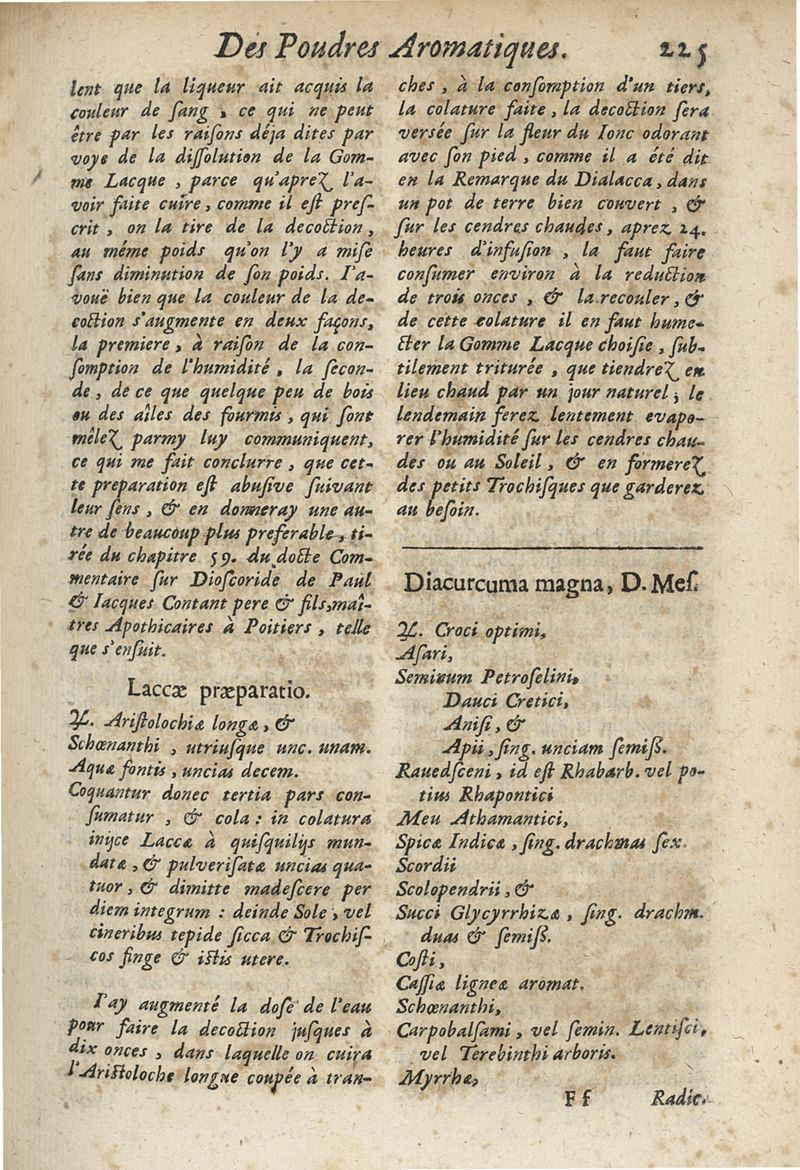 Des Poudres Aromatiques. 225
lent que la liqueur ait acquis la
couleur de ſang, ce qui ne peut
être par les raiſons déja dites par
voye de la diſſolution de la Gom-
me Lacque, parce qu'aprez l'a-
voir faite cuire, comme il eſt preſ-
crit, on la tire de la decoction,
au méme poids qu'on l'y a miſe
ſans diminution de ſon poids. I'a-
vouë bien que la couleur de la de-
coction s'augmente en deux façons,
la premiere, à raiſon de la con-
ſomption de l'humidité, la ſecon-
de, de ce que quelque peu de bois
ou des aîles des fourmis, qui ſont
mêlez parmy luy communiquent,
ce qui me fait conclurre, que cet-
te preparation eſt abuſive ſuivant
leur ſens, & en donneray une au-
tre de beaucoup plus preferable, ti-
rée du chapitre 59. du docte Com-
mentaire ſur Dioſcoride de Paul
& Iacques Contant pere & fils, maî-
tres Apothicaires à Poitiers, telle
que s'enſuit.
Laccæ præparatio.
℞. Ariſtolochiæ longæ, &
Schœnanthi, utriuſque unc. unam.
Aquæ fontis, uncias decem.
Coquantur donec tertia pars con-
ſumatur, & cola: in colatura
inijce Laccæ à quiſquilijs mun-
datæ, & pulveriſatæ uncias qua-
tuor, & dimitte madeſcere per
diem integrum: deinde Sole, vel
cineribus tepide ſicca & Trochiſ-
cos finge & iſtis utere.
I'ay augmenté la doſe de l'eau
pour faire la decoction juſques à
dix onces, dans laquelle on cuira
l'Ariſtoloche longue coupée à tran-
ches, à la conſomption d'un tiers,
la colature faite, la decoction ſera
versée ſur la fleur du Ionc odorant
avec ſon pied, comme il a été dit
en la Remarque du Dialacca, dans
un pot de terre bien couvert, &
ſur les cendres chaudes, aprez 24.
heures d'infuſion, la faut faire
conſumer environ à la reduction
de trois onces, & la recouler, &
de cette colature il en faut hume-
cter la Gomme Lacque choiſie, ſub-
tilement triturée, que tiendrez en
lieu chaud par un jour naturel; le
lendemain ferez lentement evapo-
rer l'humidité ſur les cendres chau-
des ou au Soleil, & en formerez
des petits Trochiſques que garderez
au beſoin.
Diacurcuma magna, D. Meſ.
℞. Croci optimi,
Aſari,
Seminum Petroſelini,
Dauci Cretici,
Aniſi, &
Apii, ſing. unciam ſemiß.
Rauedſceni, id eſt Rhabarb. vel po-
tius Rhapontici
Meu Athamantici,
Spicæ Indicæ, ſing. drachmas ſex.
Scordii
Scolopendrii, &
Succi Glycyrrhizæ, ſing. drachm.
duas & ſemiß.
Coſti,
Caſſiæ ligneæ aromat.
Schœnanthi,
Carpobalſami, vel ſemin. Lentiſci,
vel Terebinthi arboris.
Myrrhæ,
F f Radic.